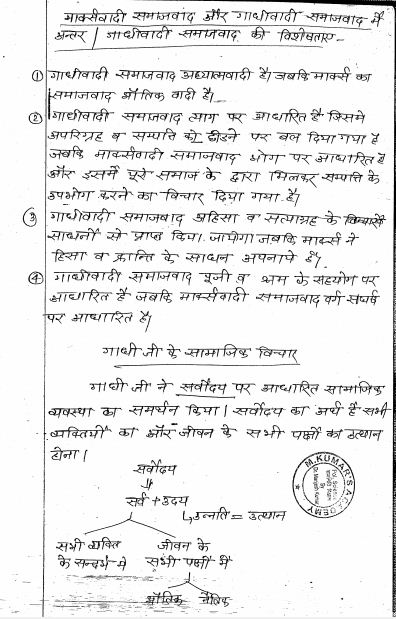 मार्क्सवादी समाजवाद और गांधीवादी समाजवाद में
अन्तर / गांधीवादी समाजवाद की विशेषताएं -
① गांधीवादी समाजवाद अध्यात्मवादी है। जबकि मार्क्स का
समाजवाद भौतिक वादी है।
② गांधीवादी समाजवाद त्याग पर आधारित है जिसमें
अपरिग्रह व सम्पत्ति को छोडने पर बल दिया गया है
जबकि मार्क्सवादी समाजवाद भोग पर आधारित है
और इसमें पूरे समाज के द्वारा मिलकर सम्पत्ति के
उपभोग करने का विचार दिया गया है।
③ गांधीवादी समाजवाद अहिंसा व सत्याग्रह के
साधनों से प्राप्त किया जायेगा जबकि मार्क्स ने
हिंसा व क्रान्ति के साधन अपनाये हैं।
④ गांधीवादी समाजवाद पूंजी व श्रम के सहयोग पर
आधारित है जबकि मार्क्सवादी समाजवाद वर्ग संघर्ष
पर आधारित है।
गांधी जी के सामाजिक विचार
गांधी जी ने सर्वोदय पर आधारित सामाजिक
व्यवस्था का समर्थन किया। सर्वोदय का अर्थ है सभी
व्यक्तियों का और जीवन के सभी पक्षों का उत्थान
होना।
सर्वोदय
सर्व + उदय
उन्नति = उत्थान
सभी व्यक्ति जीवन के
के सन्दर्भ में सभी पक्षों में
भौतिक नैतिक
M.KUMAR'S ACADEMY